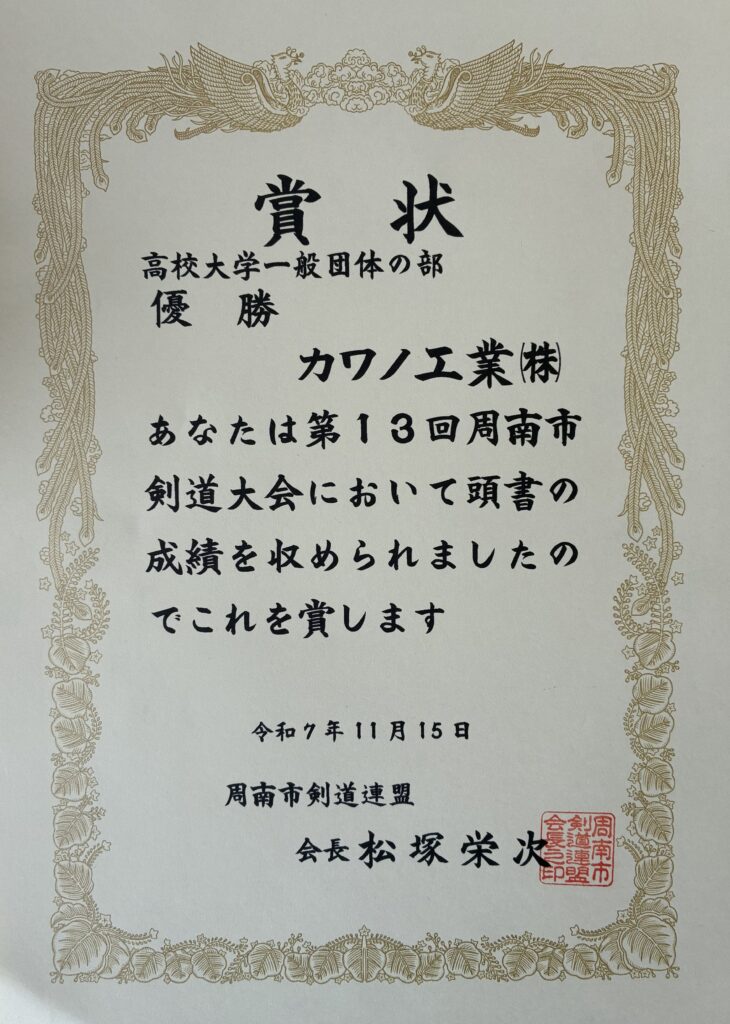 賞状
高校大学一般団体の部
優勝
カワノ工業㈱
あなたは第13回周南市
剣道大会において頭書の
成績を収められましたの
でこれを賞します
令和7年11月15日
周南市剣道連盟
会長 松塚栄次
周南市
剣道連盟
会長之印